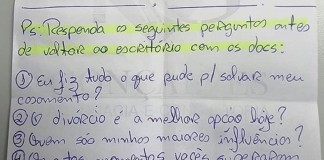 Ps: Responda os seguintes perguntas antes
de voltar ao escritório com os docs:
① Eu fiz tudo o que pude p/ salvar meu
casamento?
② O divórcio é a melhor opção hoje?
③ Quem são minhas maiores influências?